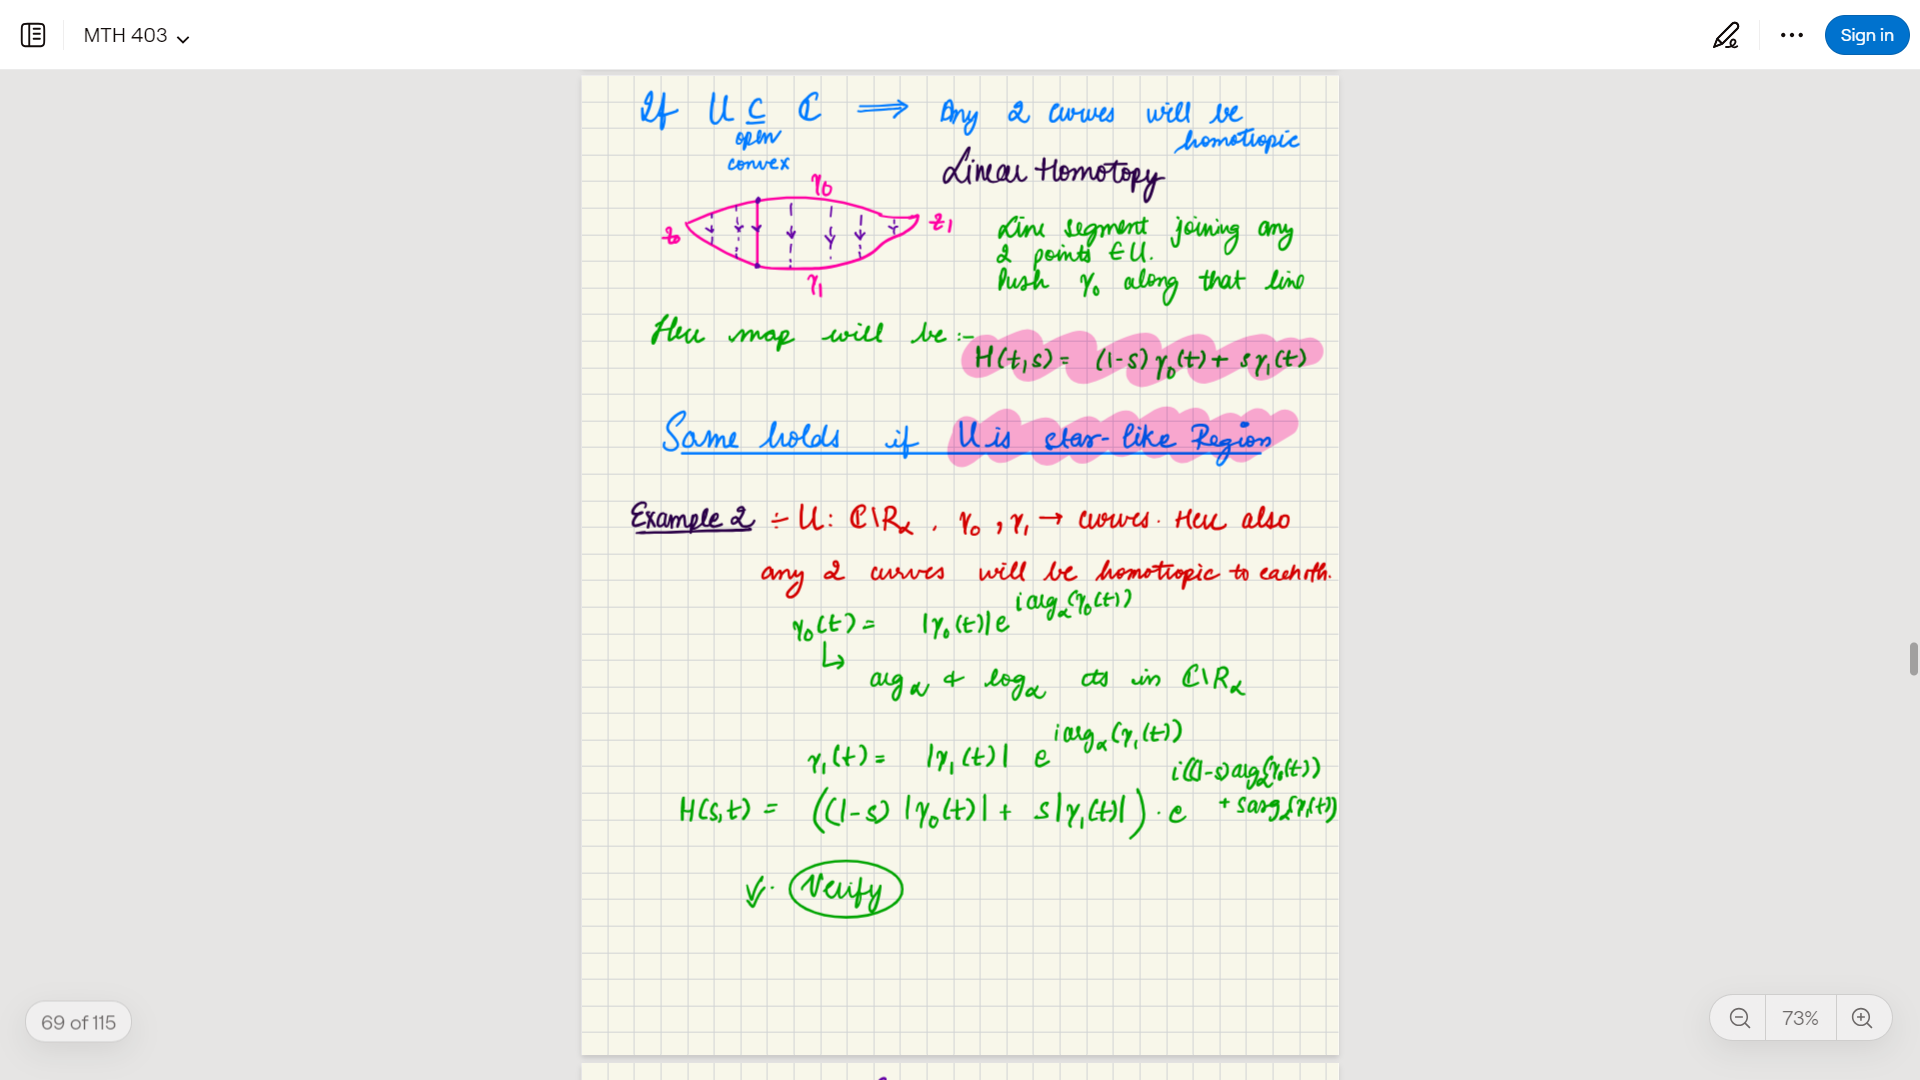 MTH 403
Sign in
If U ⊆ ℂ ⟹ Any 2 curves will be
open
homotopic
convex
Linear Homotopy
γ₀
z₀
z₁
γ₁
Line segment joining any
2 points ∈ U.
Push γ₀ along that line
Here map will be :-
H(t,s) = (1-s) γ₀(t) + s γ₁(t)
Same holds if U is star-like Region
Example 2 ÷ U: ℂ\R_α . γ₀ , γ₁ → curves. Here also
any 2 curves will be homotopic to each oth.
γ₀(t) = |γ₀(t)| e^{i arg_α(γ₀(t))}
↳ arg_α & log_α cts in ℂ\R_α
γ₁(t) = |γ₁(t)| e^{i arg_α(γ₁(t))}
H(s,t) = ((1-s) |γ₀(t)| + s|γ₁(t)|) · e^{i((1-s) arg_α(γ₀(t)) + s arg_α(γ₁(t))}
Verify
69 of 115
73%